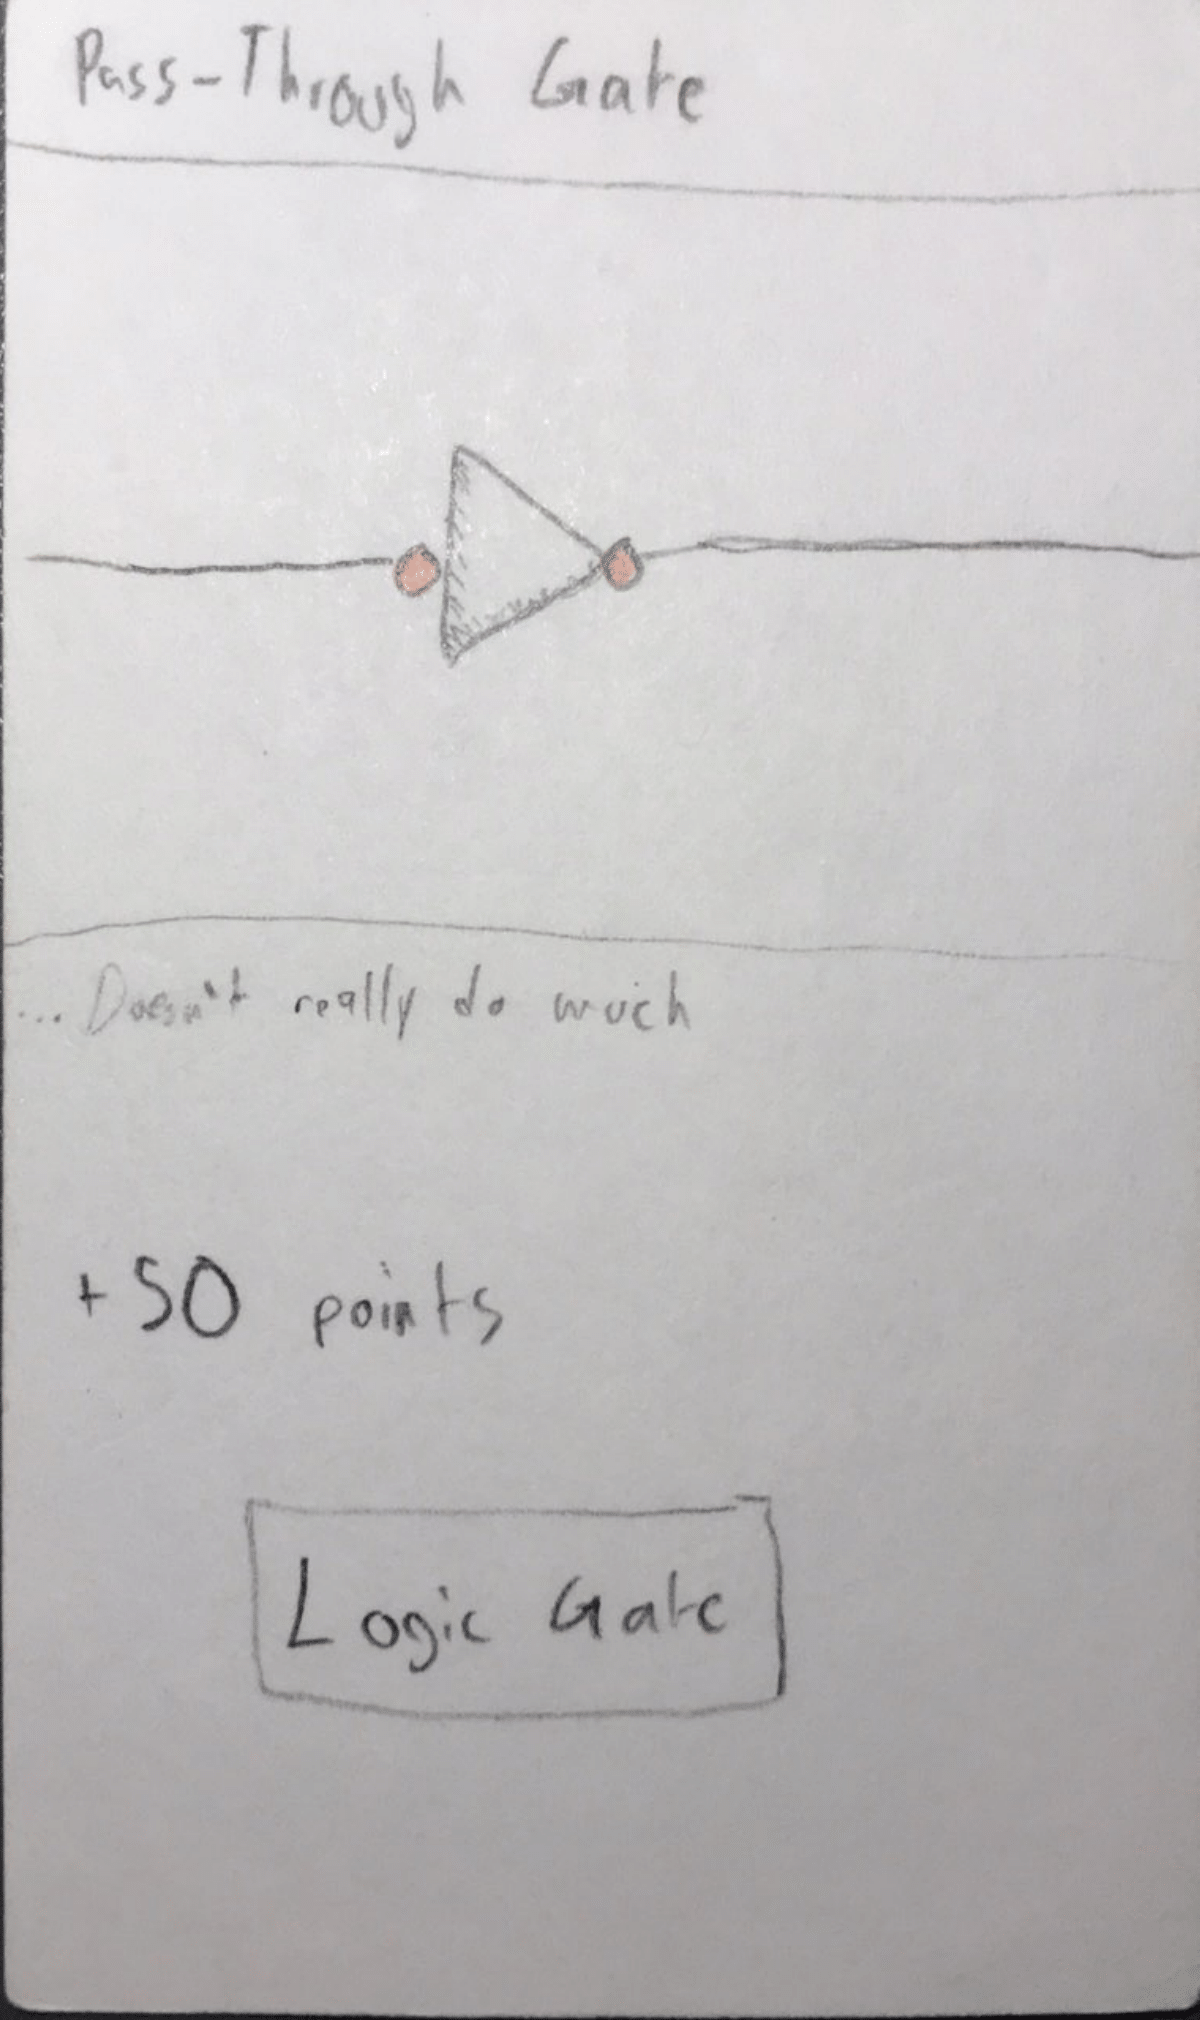 Pass-Through Gate
...Doesn't really do much
+50 points
Logic Gate